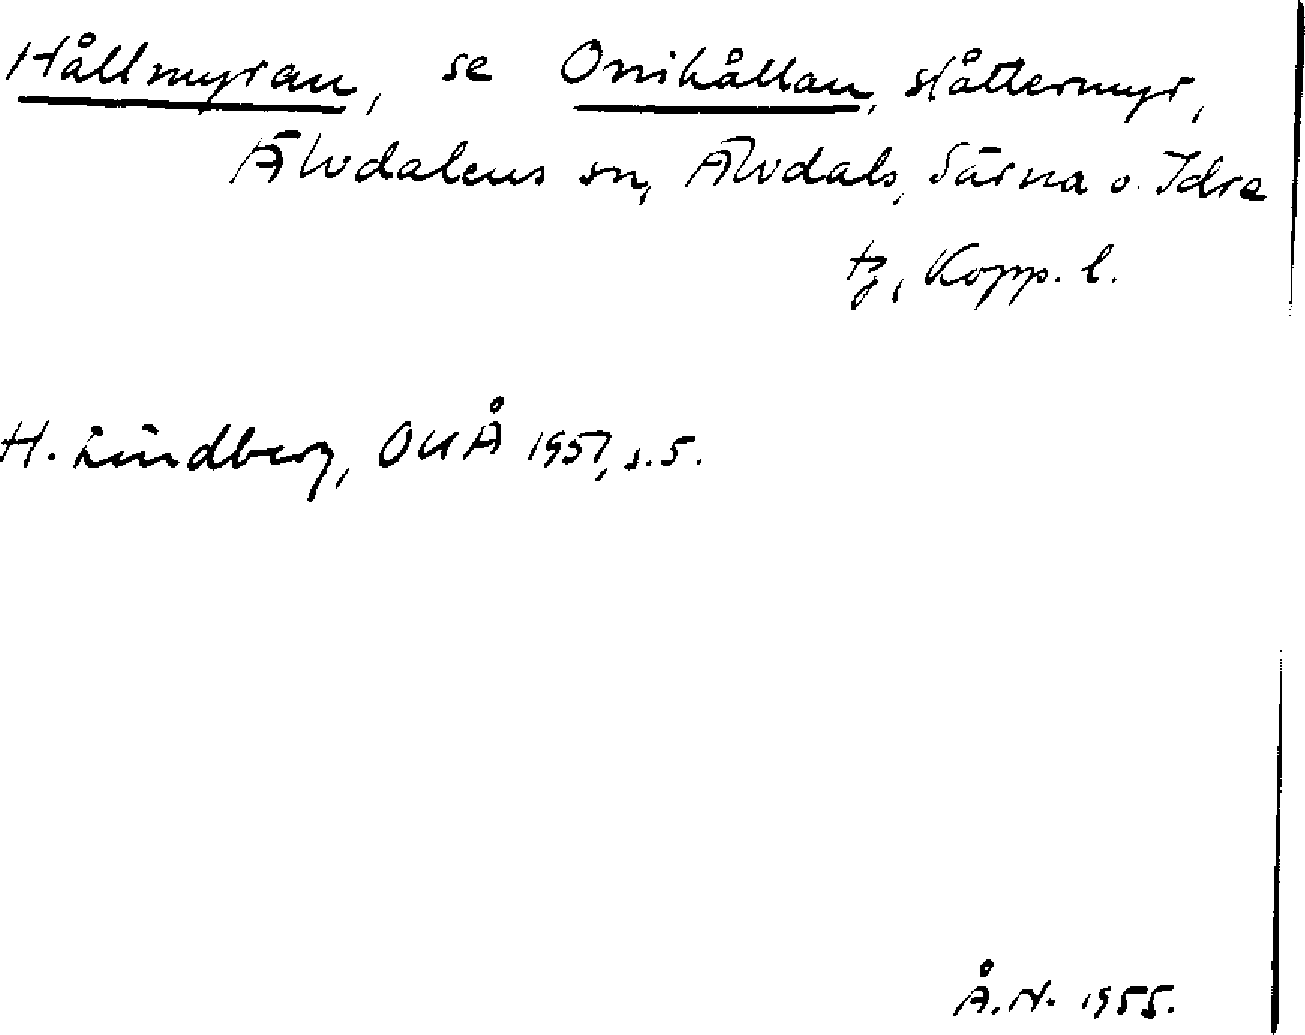 Hållmyran, se Onihållan, slåttermyr,
Älvdalens sn, Älvdals, Särna o. Idre
tg, Kopp. l.
H. Lindberg, OUÅ 1951, s. 5.
Å. N. 1955.